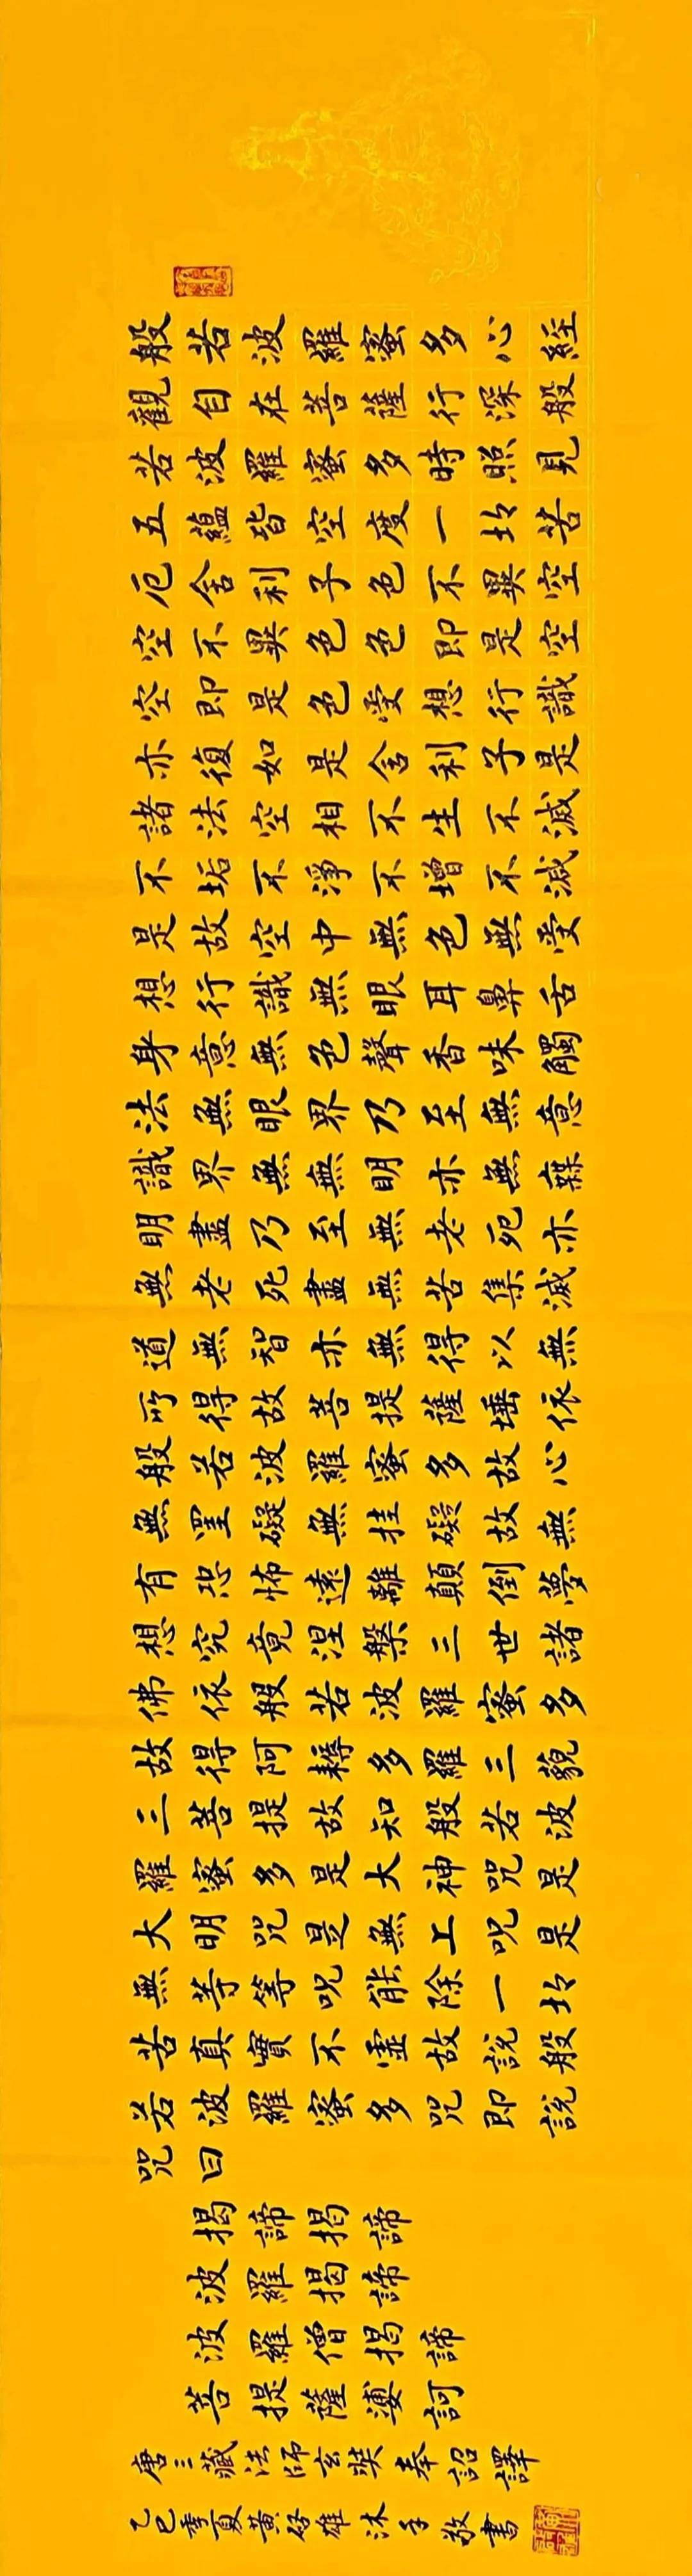 般若波羅蜜多心經
觀自在菩薩行深般
若波羅蜜多時照見
五蘊皆空度一切苦
厄舍利子色不異空
空不異色色即是空
空即是色受想行識
亦復如是舍利子是
諸法空相不生不滅
不垢不淨不增不減
是故空中無色無受
想行識無眼耳鼻舌
身意無色聲香味觸
法無眼界乃至無意
識界無無明亦無無
明盡乃至無老死亦
無老死盡無苦集滅
道無智亦無得以無
所得故菩提薩埵依
般若波羅蜜多故心
無罣礙無挂礙故無
有恐怖遠離顛倒夢
想究竟涅槃三世諸
佛依般若波羅蜜多
故得阿耨多羅三藐
三菩提故知般若波
羅蜜多是大神咒是
大明咒是無上咒是
無等等咒能除一切
苦真實不虛故說般
若波羅蜜多咒即說
咒曰
揭諦揭諦
波羅揭諦
波羅僧揭諦
菩提薩婆訶
唐三藏法師玄奘奉詔譯
乙巳季夏黃啟雄沐手敬書